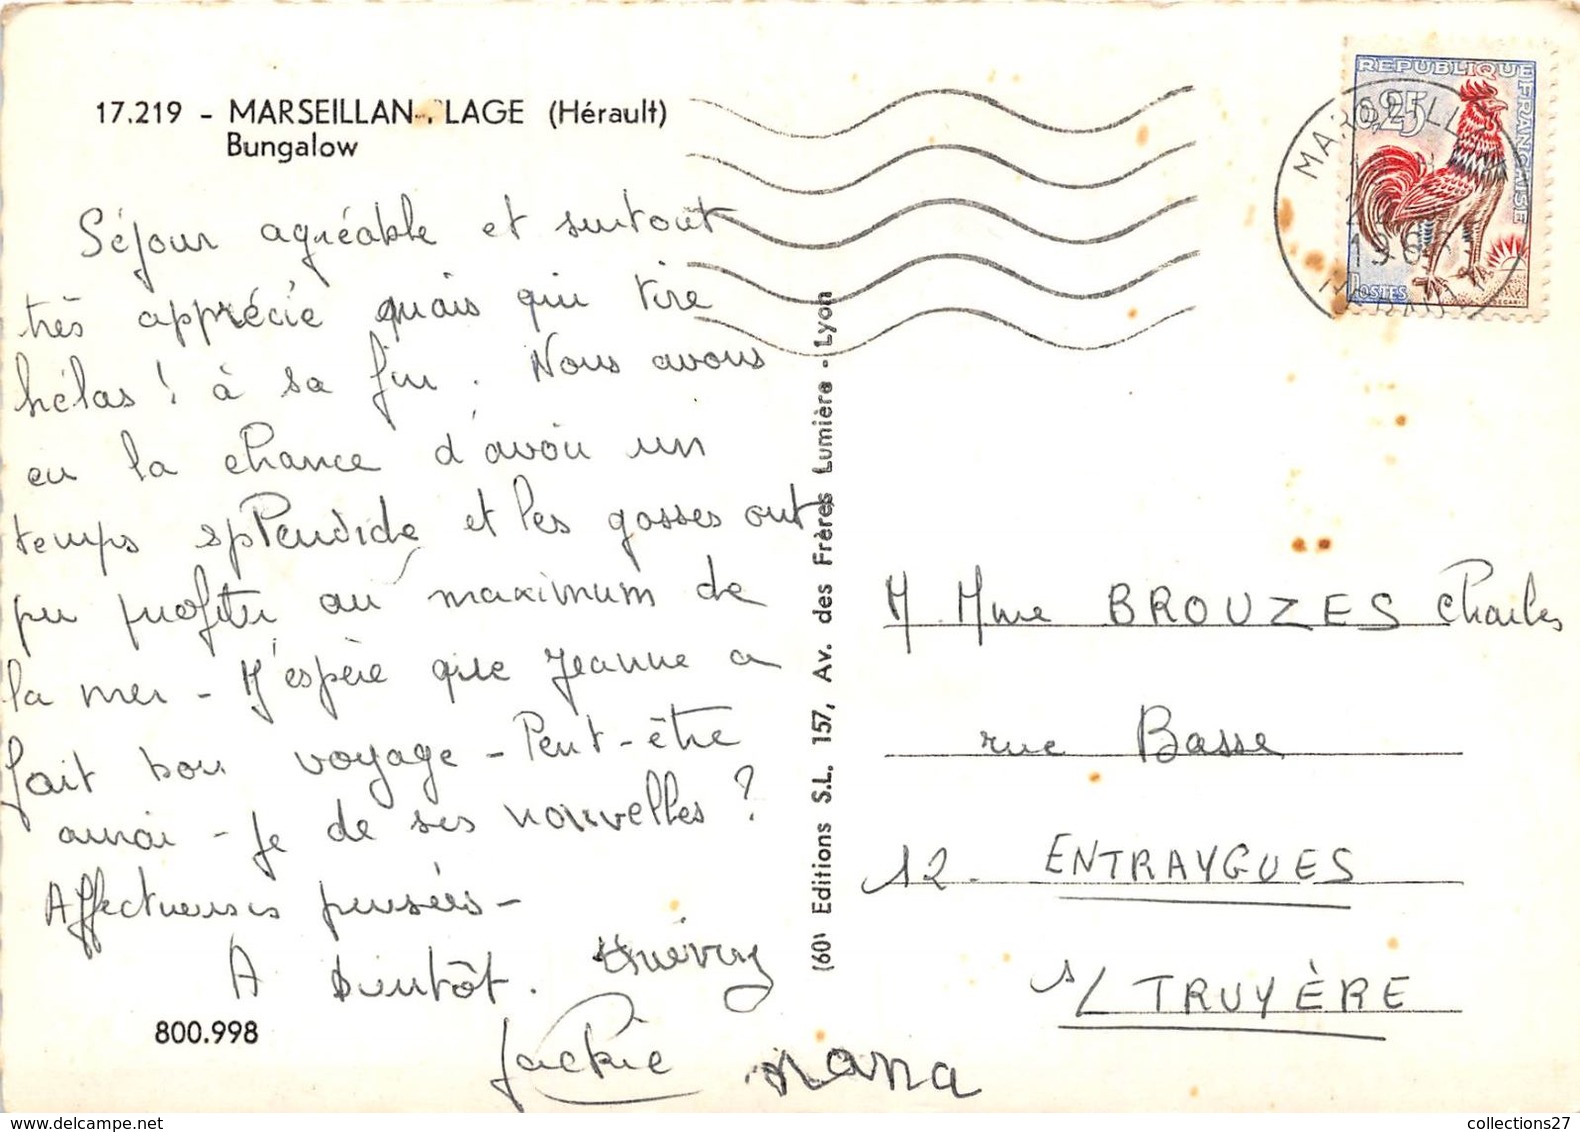 17.219 - MARSEILLAN-PLAGE (Hérault)
Bungalow
Séjour agréable et surtout
très apprécié mais qui tire
hélas ! à sa fin. Nous avons
eu la chance d'avoir un
temps splendide et les gosses ont
pu profiter au maximum de
la mer - J'espère que Jeanne a
fait bon voyage - Peut-être
aurai-je de ses nouvelles ?
Affectueuses pensées -
A bientôt. Thierry
Jackie nana
800.998
(60) Editions S.L. 157, Av. des Frères Lumière - Lyon
REPUBLIQUE FRANÇAISE
0,25
POSTES
M. Mme BROUZES Charles
rue Basse
12. ENTRAYGUES
s/ TRUYÈRE
collections27